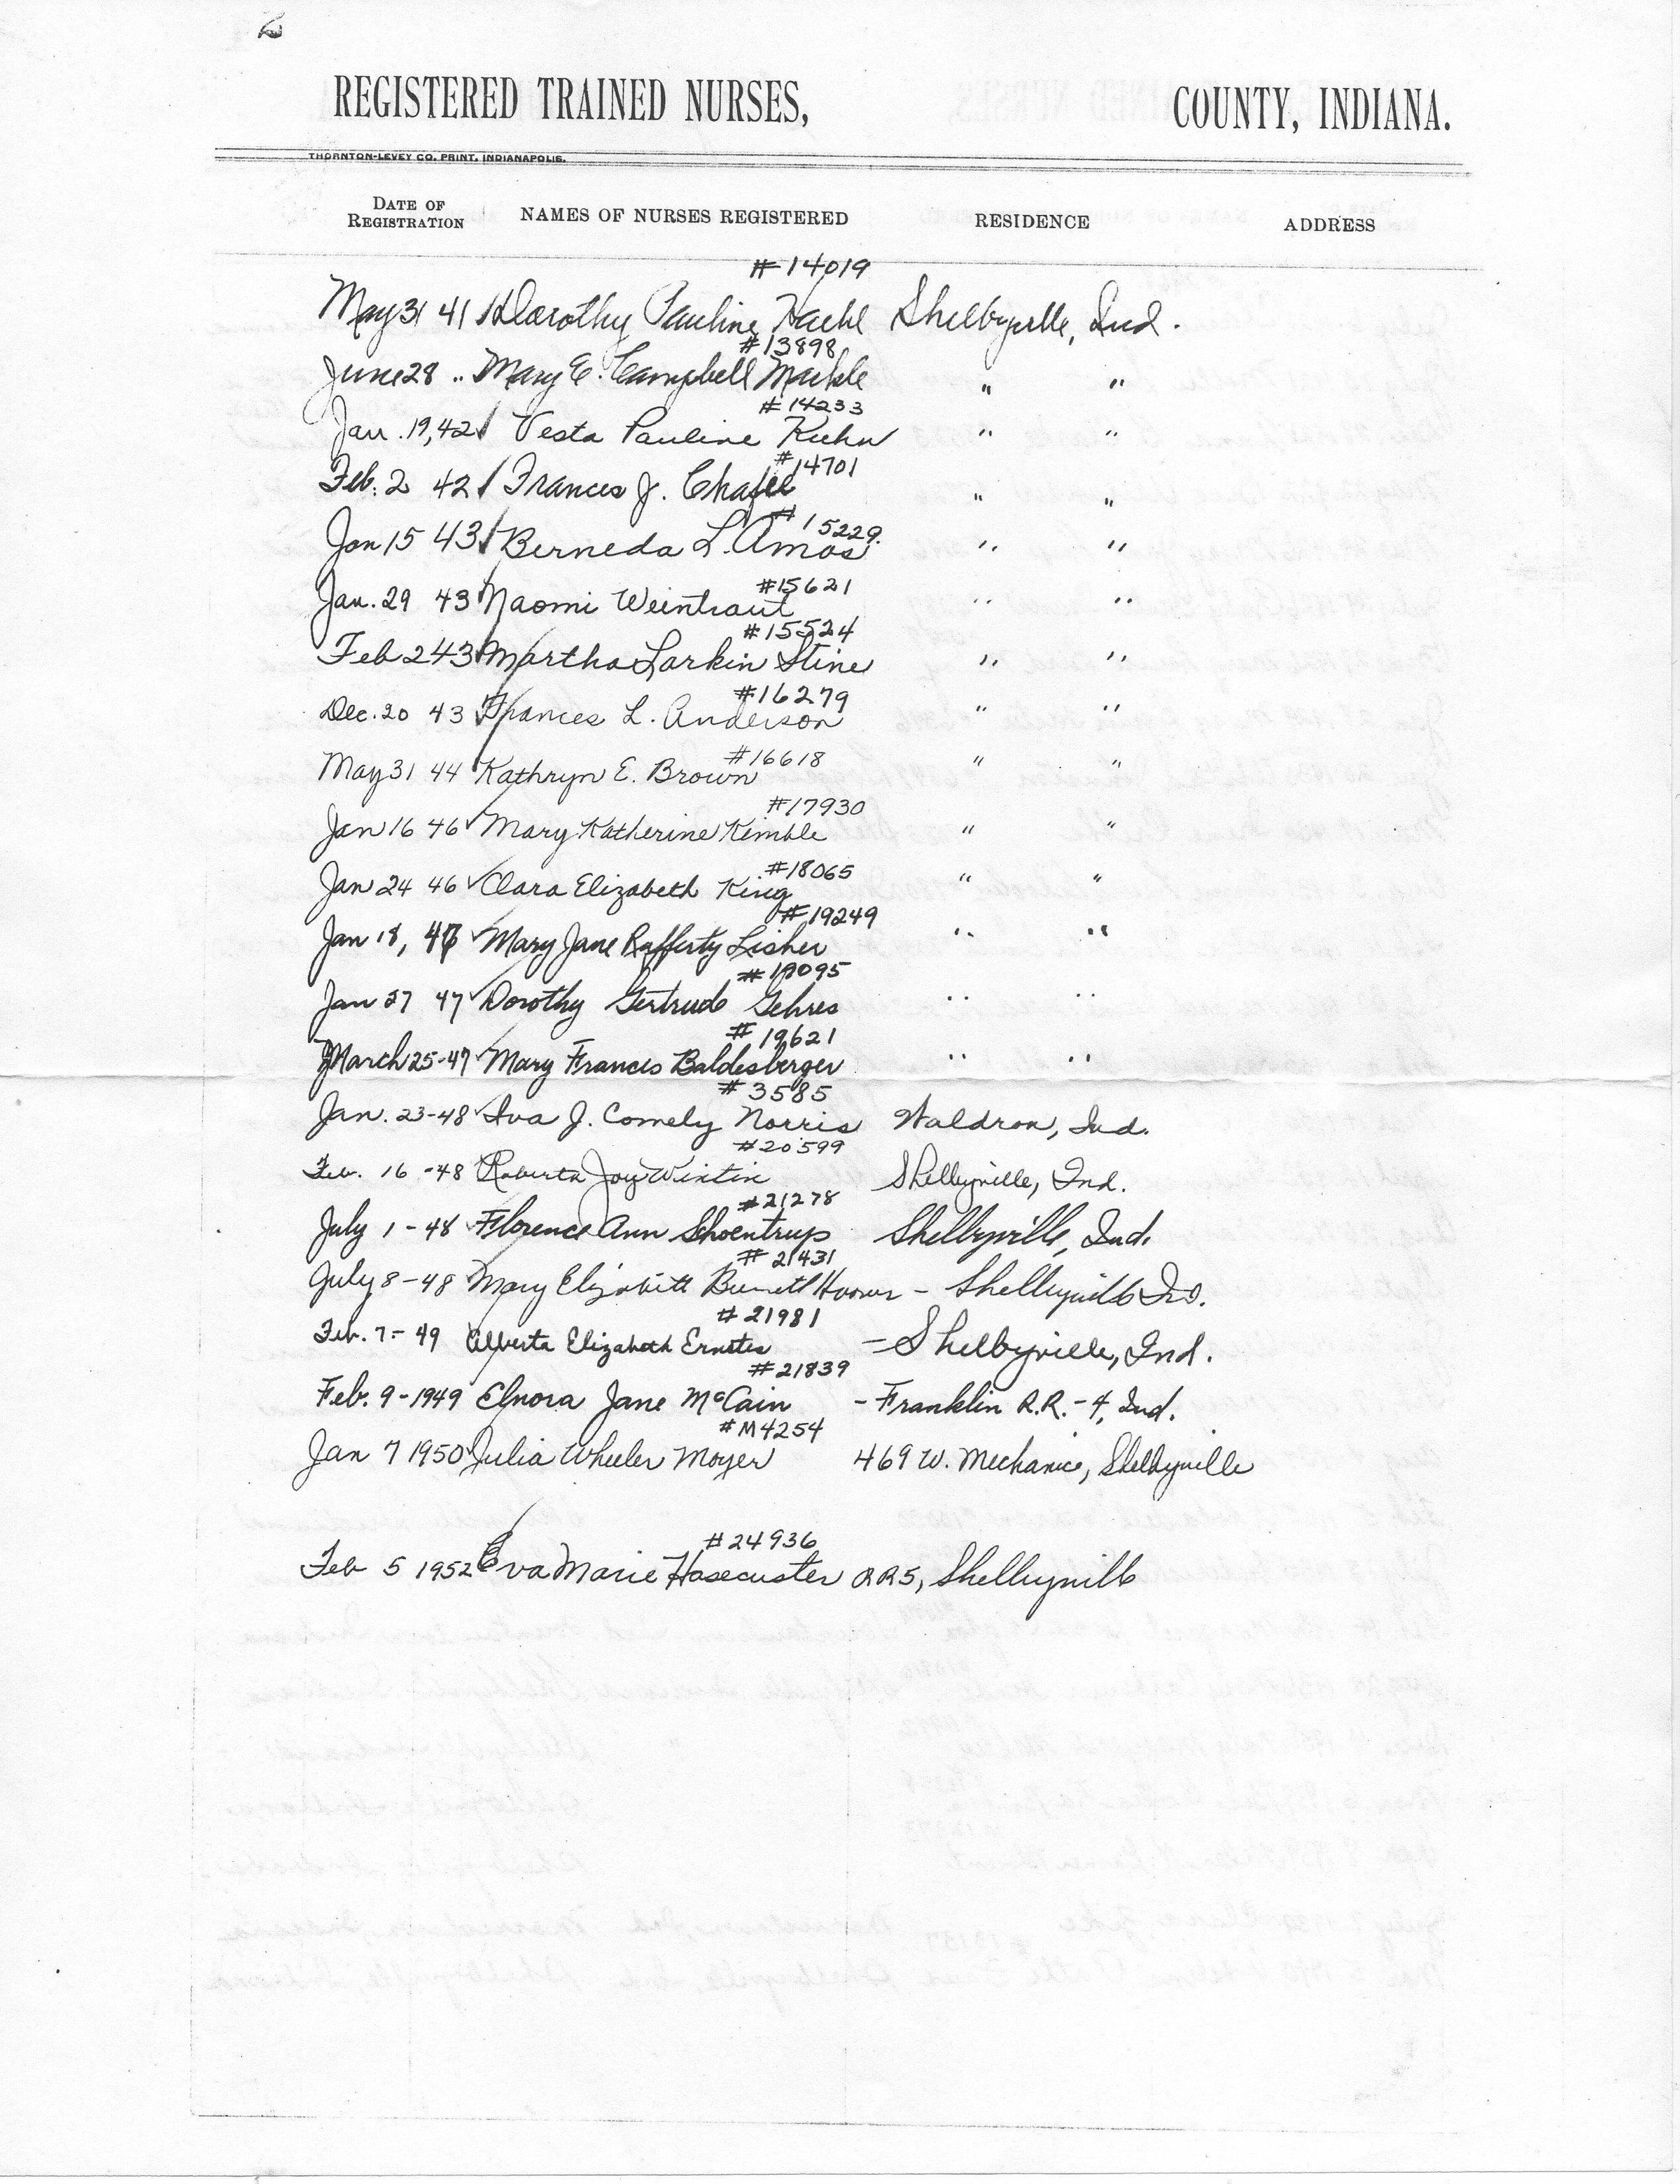 2
REGISTERED TRAINED NURSES, COUNTY, INDIANA.
THORNTON-LEVEY CO. PRINT, INDIANAPOLIS.
DATE OF REGISTRATION NAMES OF NURSES REGISTERED RESIDENCE ADDRESS
#14019
May 31 41 Dorothy Pauline Haehl Shelbyville, Ind.
#13898
June 28 " Mary E. Campbell Markle " "
#14233
Jan. 19, 42 Vesta Pauline Kuhn " "
#14701
Feb. 2 42 Frances J. Chafee " "
#15229.
Jan 15 43 Berneda L. Amos " "
#15621
Jan. 29 43 Naomi Weintraut " "
#15524
Feb 2 43 Martha Larkin Stine " "
#16279
Dec. 20 43 Frances L. Anderson " "
#16618
May 31 44 Kathryn E. Brown " "
#17930
Jan 16 46 Mary Katherine Kimble " "
#18065
Jan 24 46 Clara Elizabeth King " "
#19249
Jan 18, 47 Mary Jane Rafferty Lisher " "
#19095
Jan 27 47 Dorothy Gertrude Gehres " "
#19621
March 25-47 Mary Frances Baldesberger " "
#3585
Jan. 23-48 Iva J. Comely Norris Waldron, Ind.
#20599
Feb. 16-48 Roberta Joy Wintin Shelbyville, Ind.
#21278
July 1-48 Florence Ann Schoentrup Shelbyville, Ind.
#21431
July 8-48 Mary Elizabeth Hoover - Shelbyville Ind.
#21981
Feb. 7-49 Alberta Elizabeth Ernstes - Shelbyville, Ind.
#21839
Feb. 9-1949 Elnora Jane McCain - Franklin R.R.-4, Ind.
#M4254
Jan 7 1950 Julia Wheeler Moyer 469 W. Mechanic, Shelbyville
#24936
Feb 5 1952 Eva Marie Hasecuster RR5, Shelbyville